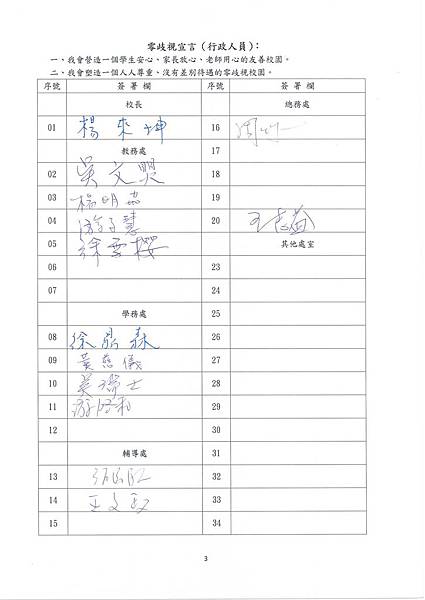 零歧視宣言(行政人員):
一、我會營造一個學生安心、家長放心、老師用心的友善校園。
二、我會塑造一個人人尊重、沒有差別待遇的零歧視校園。
序號 簽署欄 序號 簽署欄
校長 總務處
01 楊來坤 16
教務處 17
02 吳文 18
03 楊明 19
04 游子慧 20 王志
05 徐雲櫻 其他處室
06 23
07 24
學務處 25
08 徐鼎森 26
09 黃慈儀 27
10 吳瑞士 28
11 游 29
12 30
輔導處 31
13 32
14 王文 33
15 34
3